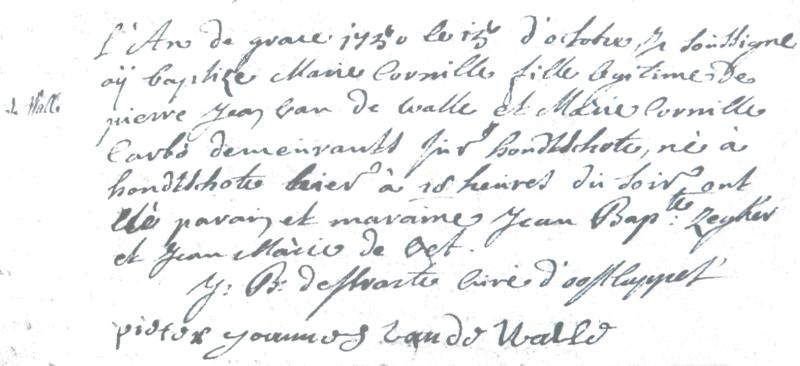 L'An de grace 1750 le 15e d'octobre Je soussigne
aÿ baptize Marie Cornille fille legitime De
de Walle
pierre Jean van de walle et Marie Cornille
Carbo demeurants sur hondtschote, nè à
hondtschote hier à 18 heures du soir ont
etè parain et maraine Jean Bapte: Zegher
et Jean Marie de Vet.
J: B: destracte curé d'oostcappel
pieter joannes vande Walle